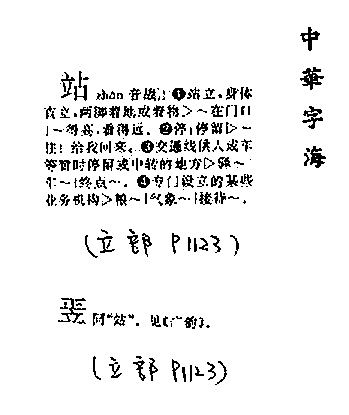 中華字海
站 zhàn 音战:❶站立,身体
直立,两脚着地或着物▷~在门口
|~得高,看得远。❷停;停留▷~
住!给我回来。❸交通线供人或车
等暂时停留或中转的地方▷驿~|
车~|终点~。❹专门设立的某些
业务机构▷粮~|气象~|接待~。
(立部 P1123)
同“站”。见《广韵》。
(立部 P1123)